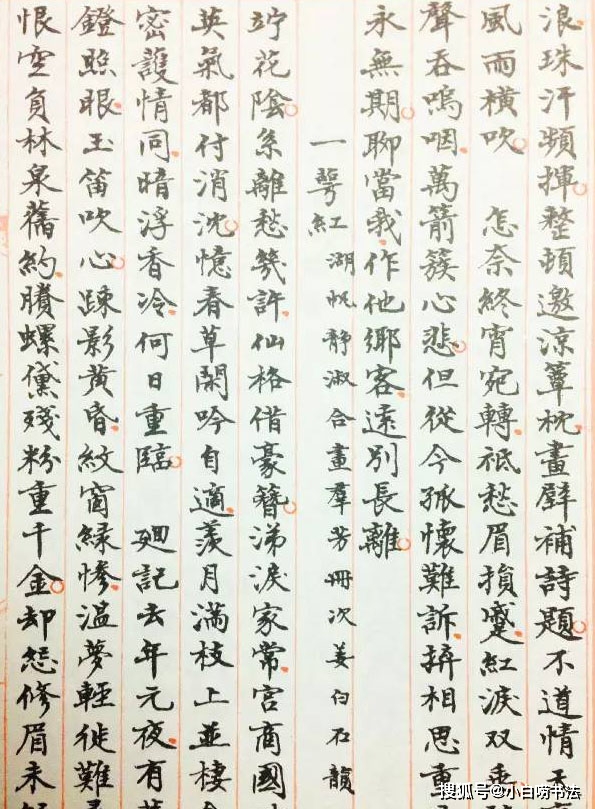 浪珠汗頻揮整頓邀涼簟枕畫壁補詩題不道情天
風雨橫吹　怎奈終宵宛轉祗愁眉損蹙紅淚双垂
聲吞嗚咽萬箭簇心悲但從今孤懷難訴拚相思重
永無期聊當我作他鄉客遠別長離
一萼紅　湖帆靜淑合畫羣芳冊次姜白石韻
竚花陰系離愁幾許仙格借豪簪涕淚家常宮商國
英氣都付消沈憶春草閑吟自適羨月滿枝上並棲
密護情同暗浮香冷何日重臨　廻記去年元夜有
鐙照眼玉笛吹心踈影黃昏紋窗緑慘溫夢輕徙難
恨空負林泉舊約賸螺黛殘粉重千金却怨修眉未
搜狐号@小白唠书法